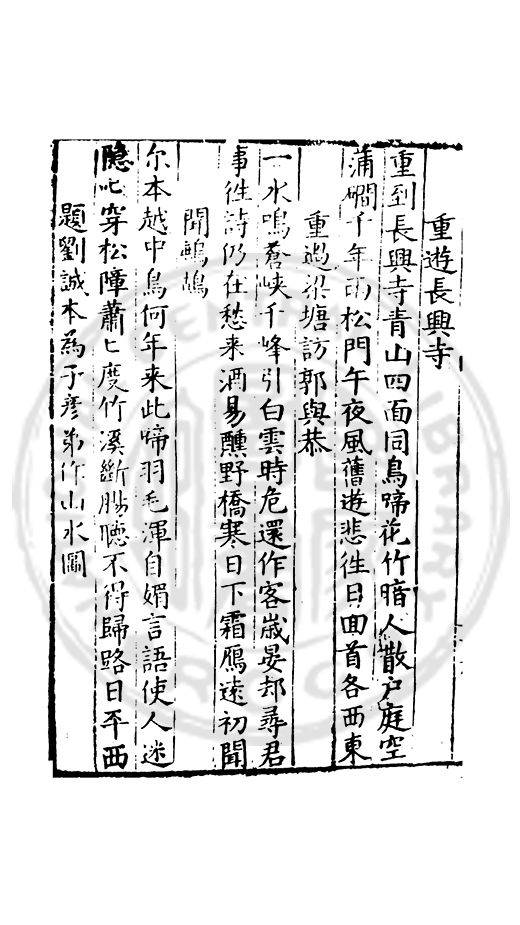 重遊長興寺
重到長興寺青山四面同鳥啼花竹暗人散户庭空
蒲磵千年雨松門午夜風舊遊悲徃日回首各西東
重過梁塘訪郭與恭
一水鳴蒼峽千峰引白雲時危還作客歲晏却尋君
事徃詩仍在愁来酒易醺野橋寒日下霜鴈遠初聞
聞鷓鴣
尓本越中鳥何年来此啼羽毛渾自媚言語使人迷
隱〻穿松障蕭〻度竹溪斷腸聴不得歸路日平西
題劉誠本為子彦弟作山水圖